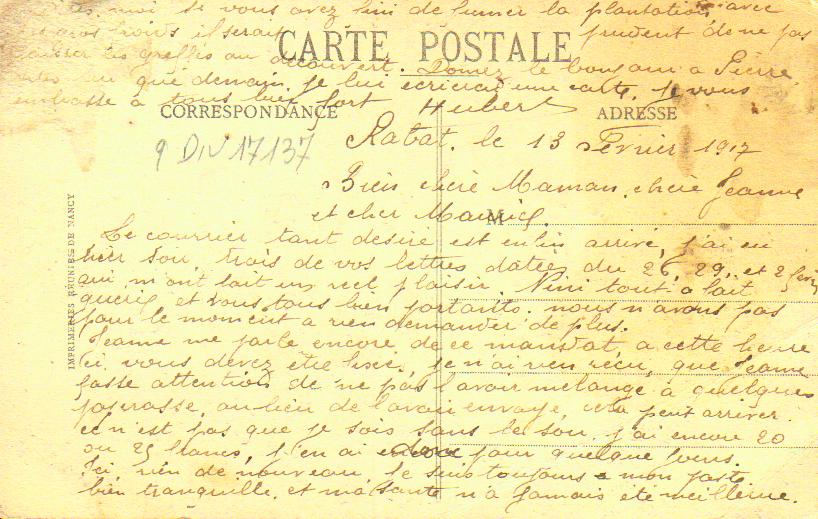 moi si vous avez fini de fumer la plantation avec
gros froids il serait prudent de ne pas
laisser les greffes au découvert. Donnez le bonjour à Pierre
que demain je lui écrirai une carte. Je vous
embrasse à tous bien fort Hubert
CARTE POSTALE
CORRESPONDANCE
ADRESSE
9 DIV 17137
Rabat. le 13 Février 1917
Bien chère Maman, chère Jeanne
et cher Maurice.
M
Le courrier tant désiré est enfin arrivé, j'ai eu
hier soir trois de vos lettres datées du 26, 29, et 2 févri
qui m'ont fait un réel plaisir. Nini tout à fait
guérie et vous tous bien portants. nous n'avons pas
pour le moment a rien demander de plus.
Jeanne me parle encore de ce mandat, a cette heure
ci vous devez être fixés, je n'ai rien reçu, que Jeanne
fasse attention de ne pas l'avoir mélangé à quelques
paperasse, au lieu de l'avoir envoyé, cela peut arriver.
ce n'est pas que je sois sans le sou. j'ai encore 20
ou 25 francs, j'en ai encore pour quelque jours.
Ici rien de nouveau. Je suis toujours a mon poste
bien tranquille. et ma santé n'a jamais été meilleure.
IMPRIMERIES RÉUNIES DE NANCY